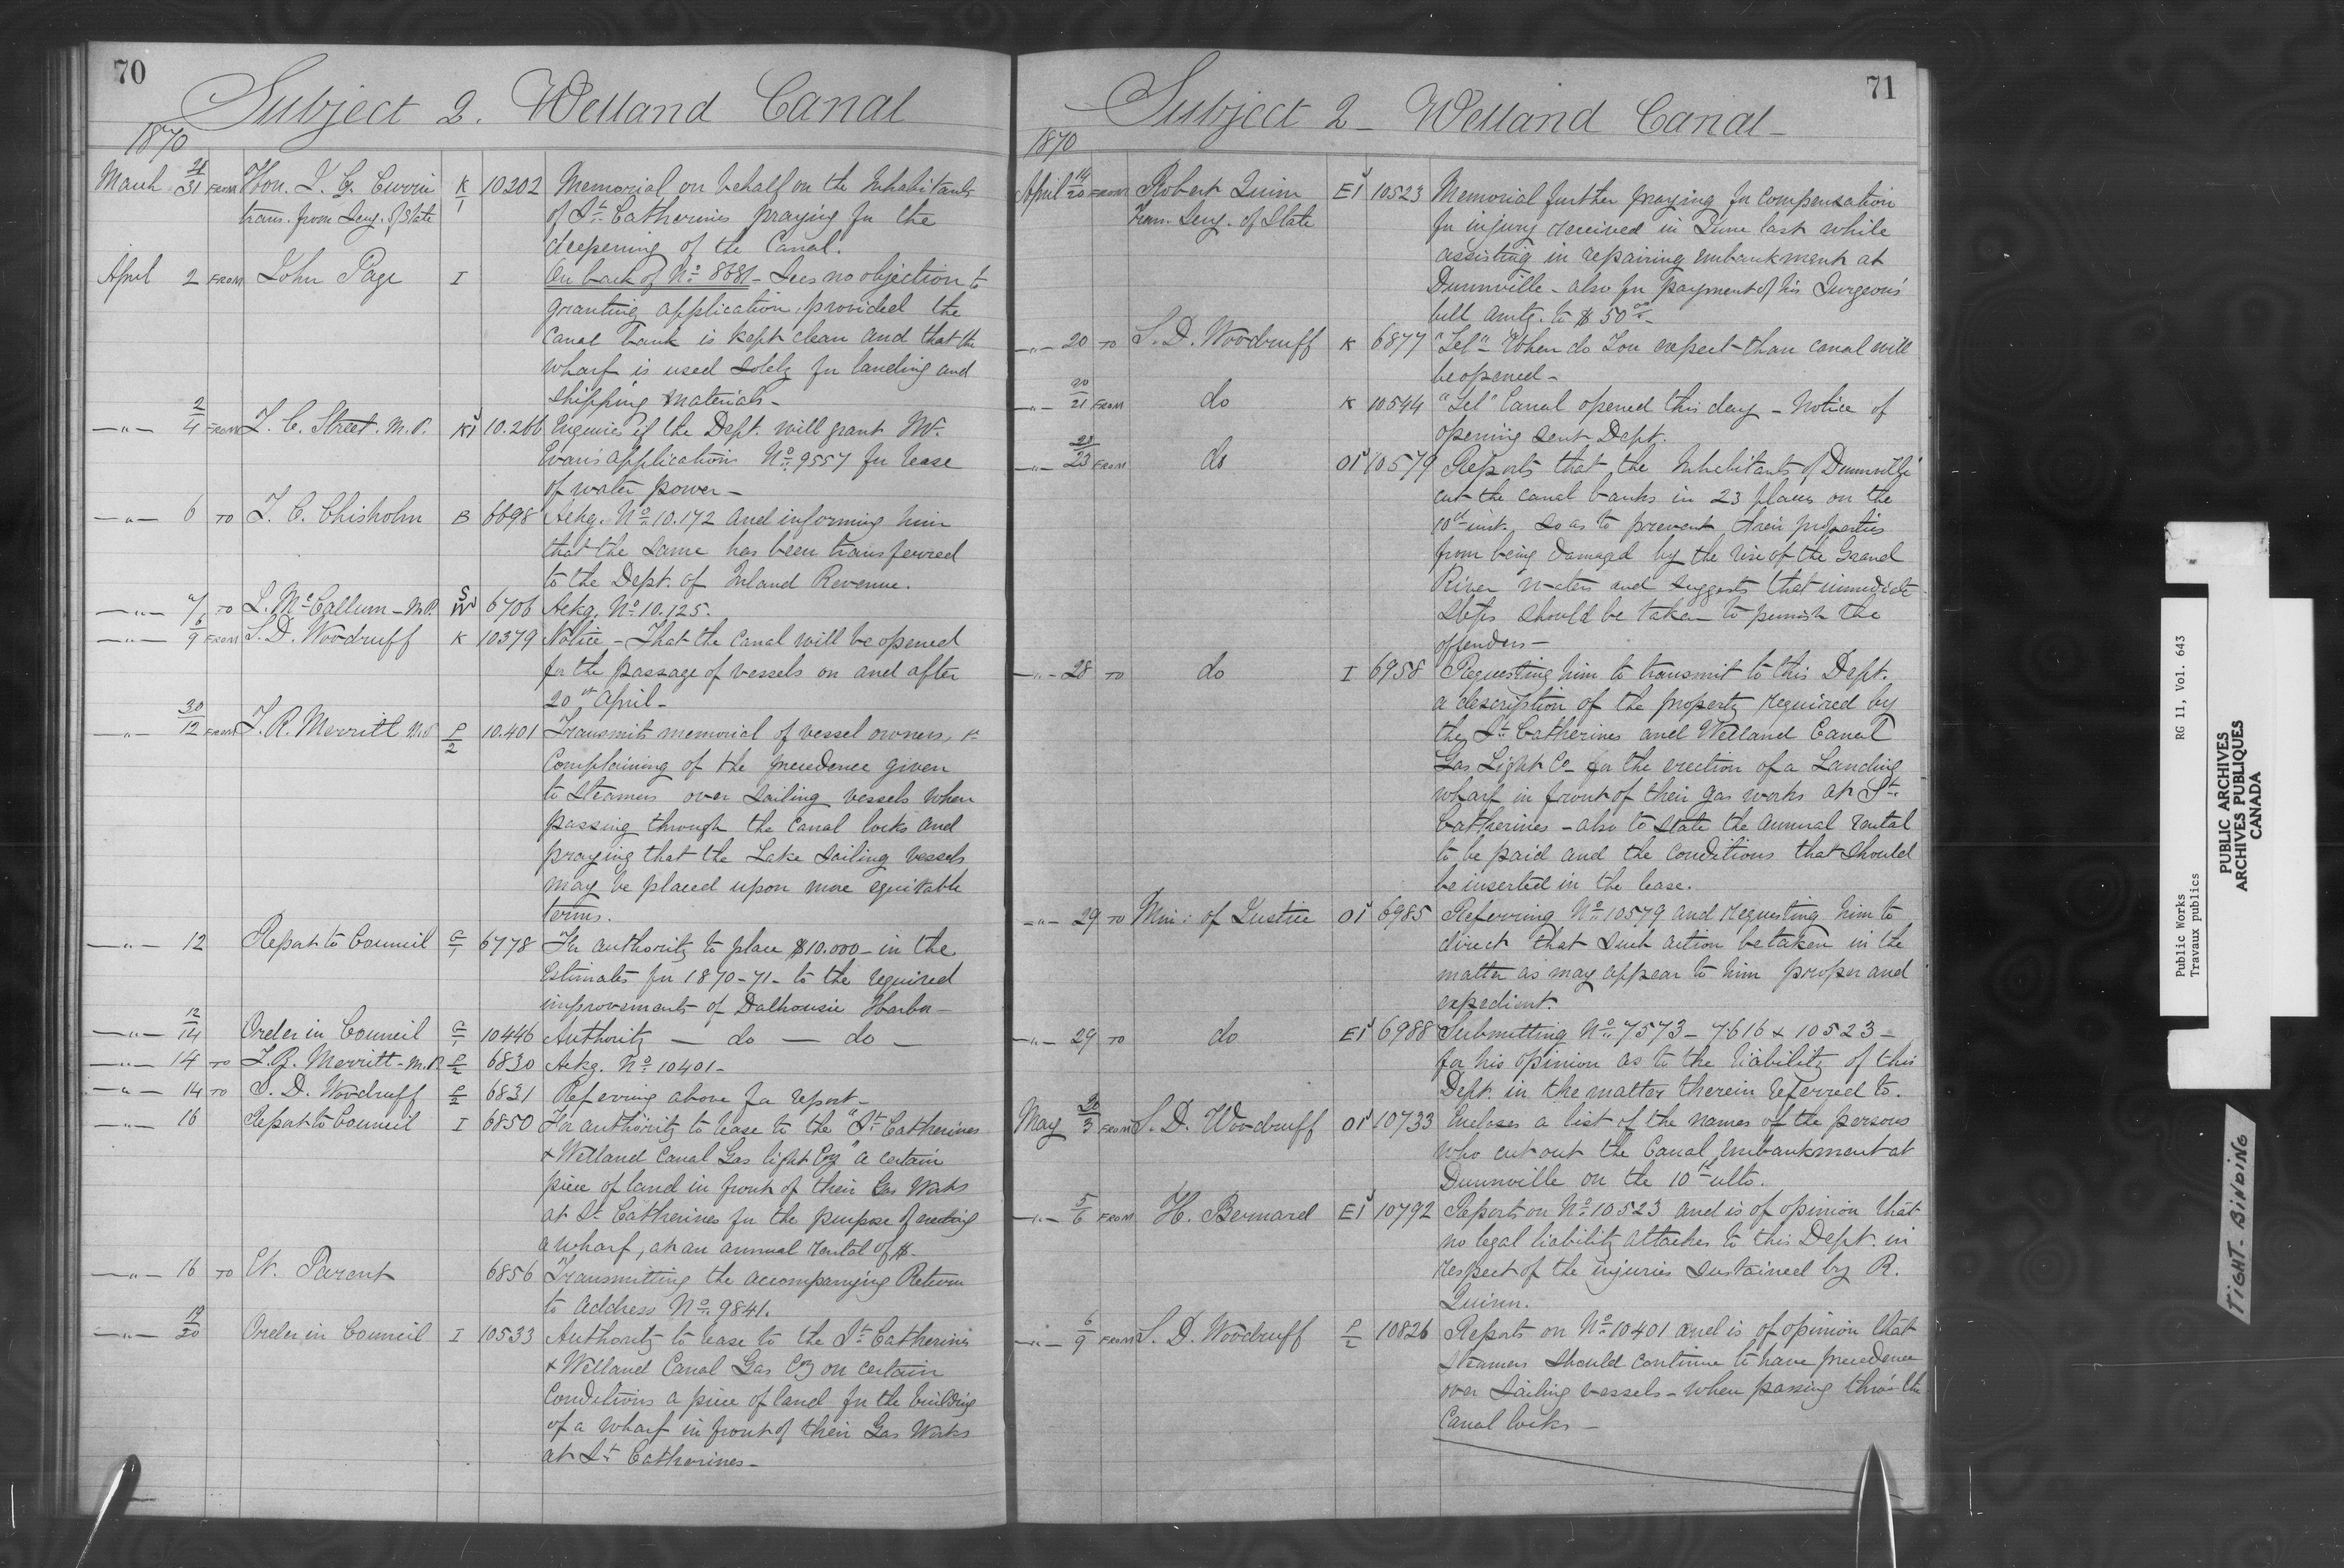 70
Subject 2. Welland Canal
1870
March 28/31 FROM Hon. J. G. Currie K/1 10202 Memorial on behalf on the Inhabitants
trans. from Secy. of State of St. Catherines praying for the
deepening of the Canal.
April 2 FROM John Page I On back of No. 8681 - Sees no objection to
granting application, provided the
Canal Bank is kept clean and that the
wharf is used solely for landing and
shipping materials -
-"- 2/4 FROM T. C. Street. M.P. K1 10.266 Inquires if the Dept. will grant Mr.
Evans' application No. 9557 for lease
of water power -
-"- 6 TO T. C. Chisholm B 6698 Ackg. No. 10.172 and informing him
that the same has been transferred
to the Dept. of Inland Revenue.
-"- 7 TO L. McCallum - M.P. 6706 Ackg. No. 10.125.
-"- 6/9 FROM S. D. Woodruff K 10379 Notice - That the Canal will be opened
for the passage of vessels on and after
20th April -
-"- 30/12 FROM T. R. Merritt M.P. P/2 10.401 Transmits memorial of vessel owners, &c
Complaining of the precedence given
to steamers over sailing vessels when
passing through the Canal locks and
praying that the Lake sailing vessels
may be placed upon more equitable
terms.
-"- 12 Report to Council 6778 For authority to place $10.000 - in the
Estimates for 1870-71 - to the required
improvements of Dalhousie Harbor -
-"- 12/14 Order in Council 10446 Authority - do - do -
-"- 14 TO T. R. Merritt - M.P. P/2 6830 Ackg. No. 10401 -
-"- 14 TO S. D. Woodruff P/2 6831 Referring above for report -
-"- 16 Report to Council I 6850 For authority to lease to the "St. Catherines
& Welland Canal Gas light Coy" a certain
piece of land in front of their Gas Works
at St. Catherines for the purpose of erecting
a wharf, at an annual rental of $ -
-"- 16 TO E. Parent 6856 Transmitting the accompanying Return
to Address No. 9841.
-"- 19/20 Order in Council I 10533 Authority to lease to the St. Catherines
& Welland Canal Gas Coy on certain
Conditions a piece of land for the building
of a wharf in front of their Gas Works
at St. Catherines -
71
Subject 2 - Welland Canal -
1870
April 14/20 FROM Robert Quinn E1 10523 Memorial further praying for compensation
Trans. Secy. of State for injury received in June last while
assisting in repairing embankment at
Dunnville - also for payment of his Surgeons'
bill amtg. to $50 -
-"- 20 TO S. D. Woodruff K 6877 "Tel" - When do you expect than canal will
be opened -
-"- 20/21 FROM do K 10544 "Tel" Canal opened this day - Notice of
opening sent Dept.
-"- 22/23 FROM do O1 10579 Reports that the Inhabitants of Dunnville
cut the canal banks in 23 places on the
10th inst. so as to prevent their properties
from being damaged by the rise of the Grand
River waters and suggests that immediate
steps should be taken to punish the
offenders -
-"- 28 TO do I 6958 Requesting him to transmit to this Dept.
a description of the property required by
the St. Catherines and Welland Canal
Gas Light Co - for the erection of a Landing
wharf in front of their gas works at St.
Catherines - also to state the annual rental
to be paid and the conditions that should
be inserted in the lease.
-"- 29 TO Min: of Justice O1 6985 Referring No. 10579 and requesting him to
direct that such action be taken in the
matter as may appear to him proper and
expedient.
-"- 29 TO do E1 6988 Submitting No. 7573 - 7616 & 10523 -
for his opinion as to the liability of this
Dept. in the matter therein referred to.
May 30/3 FROM S. D. Woodruff O1 10733 Encloses a list of the names of the persons
who cut out the Canal embankment at
Dunnville on the 10th ulto.
-"- 5/6 FROM H. Bernard E1 10792 Reports on No. 10523 and is of opinion that
no legal liability attaches to this Dept. in
respect of the injuries sustained by R.
Quinn.
-"- 6/9 FROM S. D. Woodruff P/2 10826 Reports on No. 10401 and is of opinion that
steamers should continue to have precedence
over sailing vessels - when passing thro' the
Canal locks -
Public Works RG 11, Vol. 643
Travaux publics
PUBLIC ARCHIVES
ARCHIVES PUBLIQUES
CANADA
TIGHT-BINDING